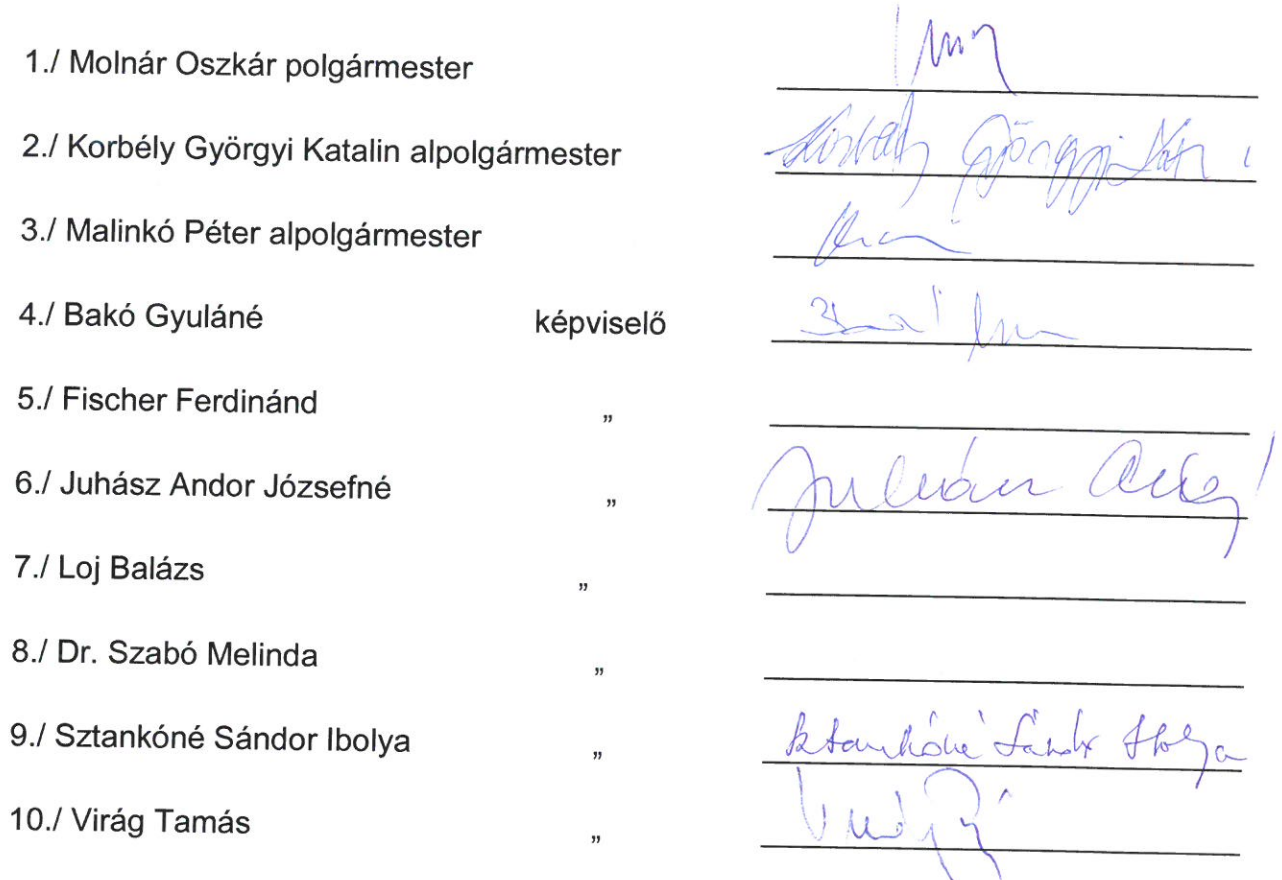 1./ Molnár Oszkár polgármester
2./ Korbély Györgyi Katalin alpolgármester Korbély Györgyi Kat
3./ Malinkó Péter alpolgármester
4./ Bakó Gyuláné képviselő
5./ Fischer Ferdinánd „
6./ Juhász Andor Józsefné „
7./ Loj Balázs „
8./ Dr. Szabó Melinda „
9./ Sztankóné Sándor Ibolya „ Sztankóné Sándor Ibolya
10./ Virág Tamás „